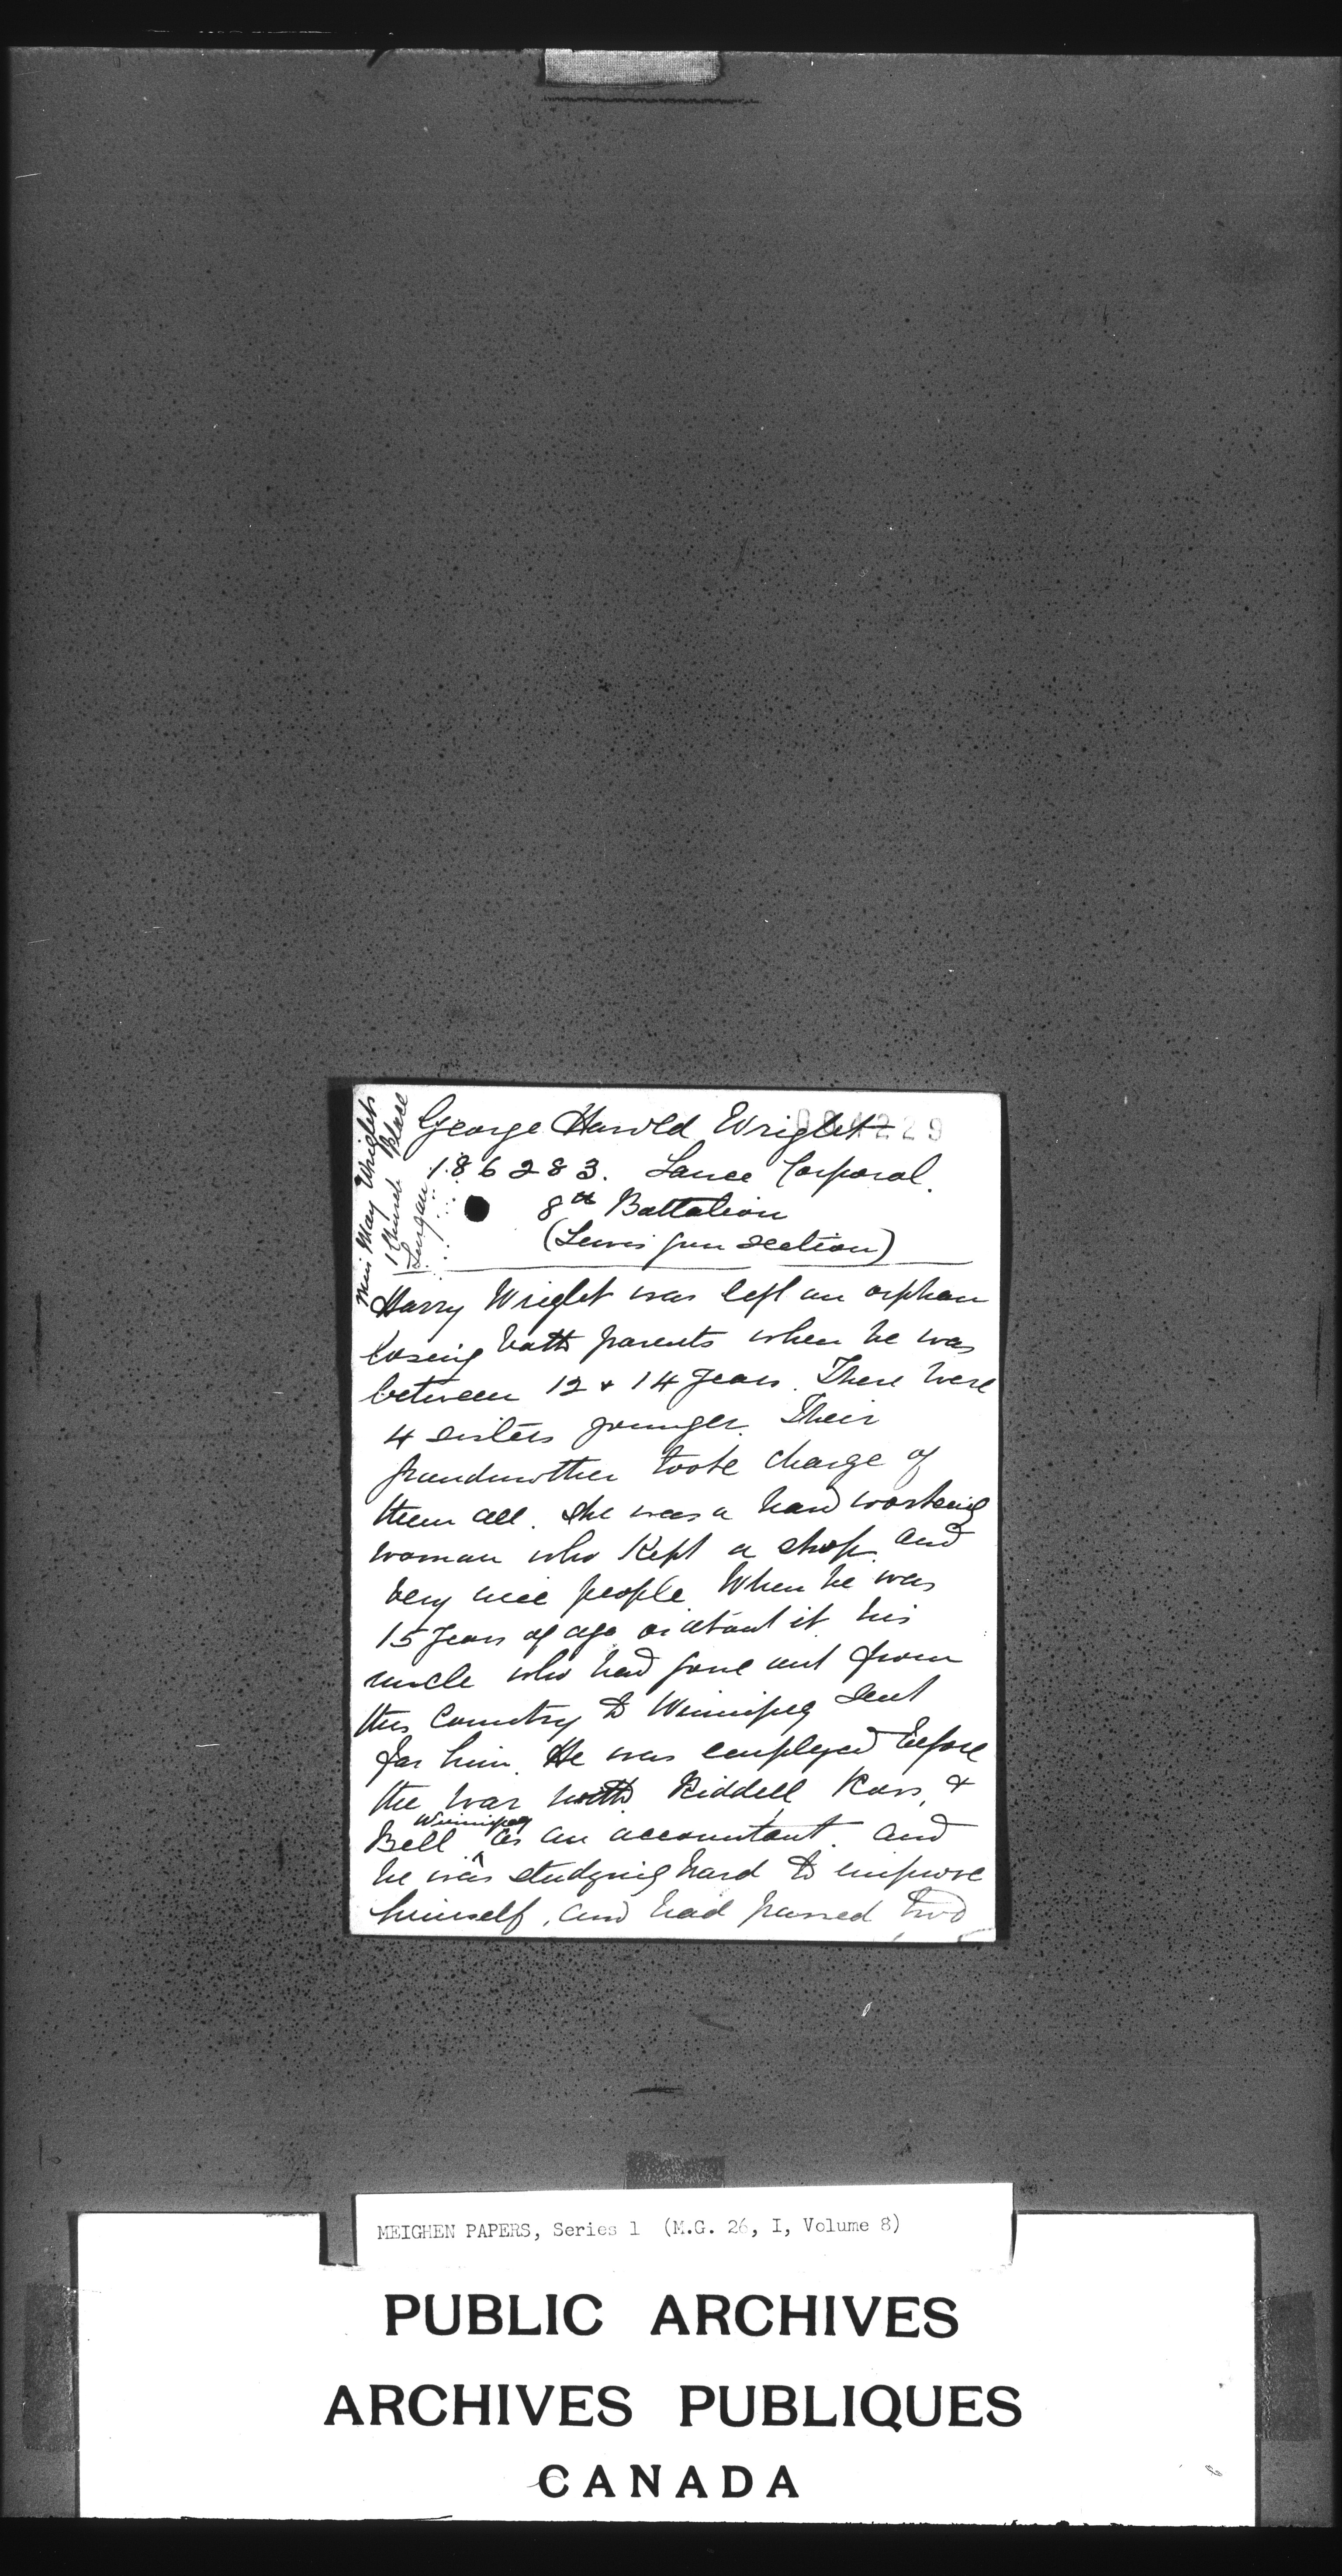 George Harold Wright
186283. Lance Corporal.
8th Battalion
(Lewis gun section)
Miss May Wright
1 Church Place
Lurgan
Harry Wright was left an orphan
losing both parents when he was
between 12 & 14 years. There were
4 sisters younger. Their
grandmother took charge of
them all. She was a hard working
woman who kept a shop and
very nice people. When he was
15 years of age or about it his
uncle who had gone out from
this Country to Winnipeg sent
for him. He was employed before
the war with Riddell Ross, &
Bell Winnipeg as an accountant. and
he was studying hard to improve
himself, and had passed two
MEIGHEN PAPERS, Series 1 (M.G. 26, I, Volume 8)
PUBLIC ARCHIVES
ARCHIVES PUBLIQUES
CANADA